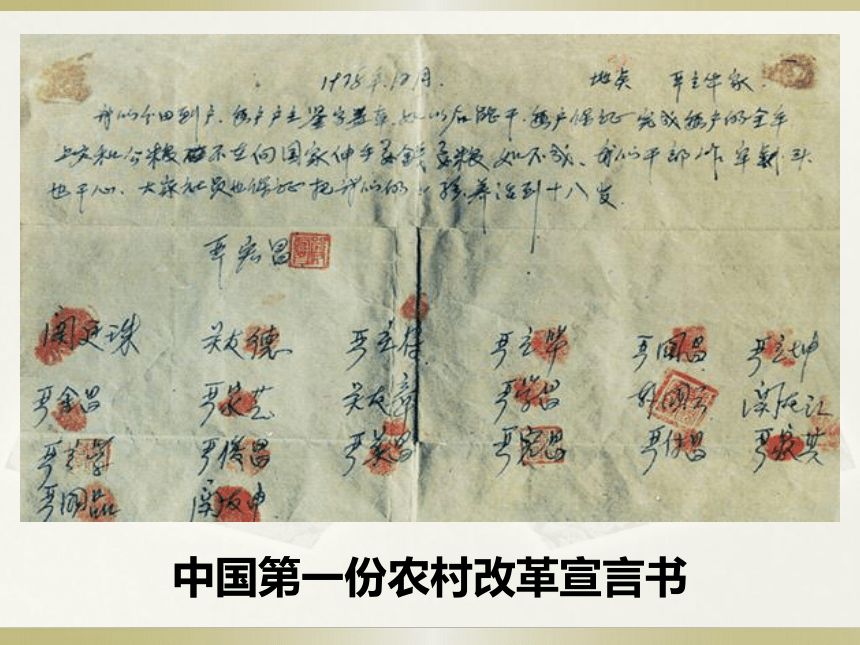 1978年12月. 地点 严立华家.
我们分田到户.每户户主签字盖章.如以后能干.每户保证完成每户的全年
上交和公粮.不在向国家伸手要钱要粮.如不成.我们干部作牢割头
也干心.大家社员也保证把我们的小孩养活到十八岁.
严宏昌
关廷珠 关友德 严立符 严立华 严国昌 严立坤
严金昌 严家芝 关友章 严学昌 韩国云 关友江
严立学 严俊昌 严美昌 严宏昌 严付昌 严家其
严国品 关友申
中国第一份农村改革宣言书